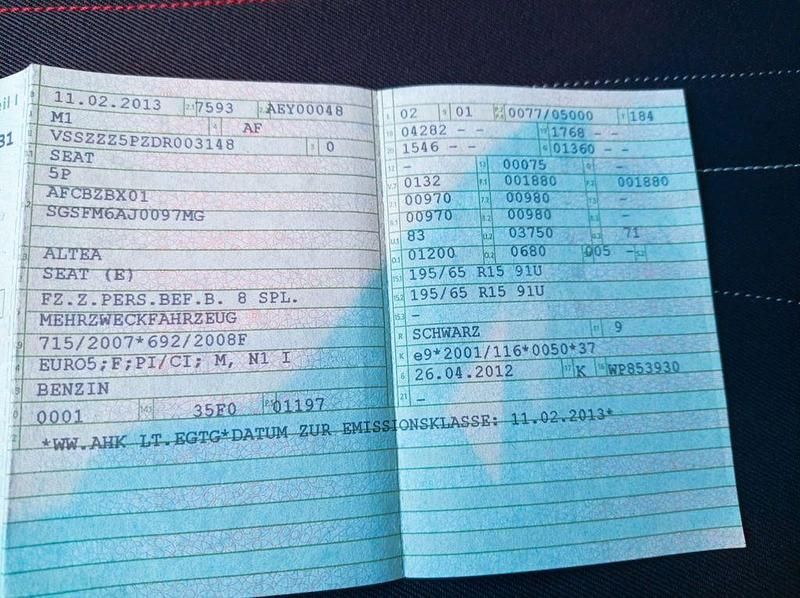 eil I
31
11.02.2013 2.1 7593 2.2 AEY00048
M1 AF
VSSZZZ5PZDR003148 3 0
SEAT
5P
AFCBZBX01
SGSFM6AJ0097MG
ALTEA
SEAT (E)
FZ.Z.PERS.BEF.B. 8 SPL.
MEHRZWECKFAHRZEUG
715/2007*692/2008F
EURO5;F;PI/CI; M, N1 I
BENZIN
0001 14.1 35F0 P.1 01197
*WW.AHK LT.EGTG*DATUM ZUR EMISSIONSKLASSE: 11.02.2013*
02 9 01 0077/05000 184
04282 – – 1768 – –
1546 – – 01360 – –
– 00075 –
V.7 0132 F.1 001880 F.2 001880
00970 00980 –
00970 00980 –
U.1 83 U.2 03750 U.3 71
O.1 01200 O.2 0680 005 –
15.1 195/65 R15 91U
15.2 195/65 R15 91U
15.3 –
R SCHWARZ 11 9
K e9*2001/116*0050*37
6 26.04.2012 17 K 16 WP853930
21 –